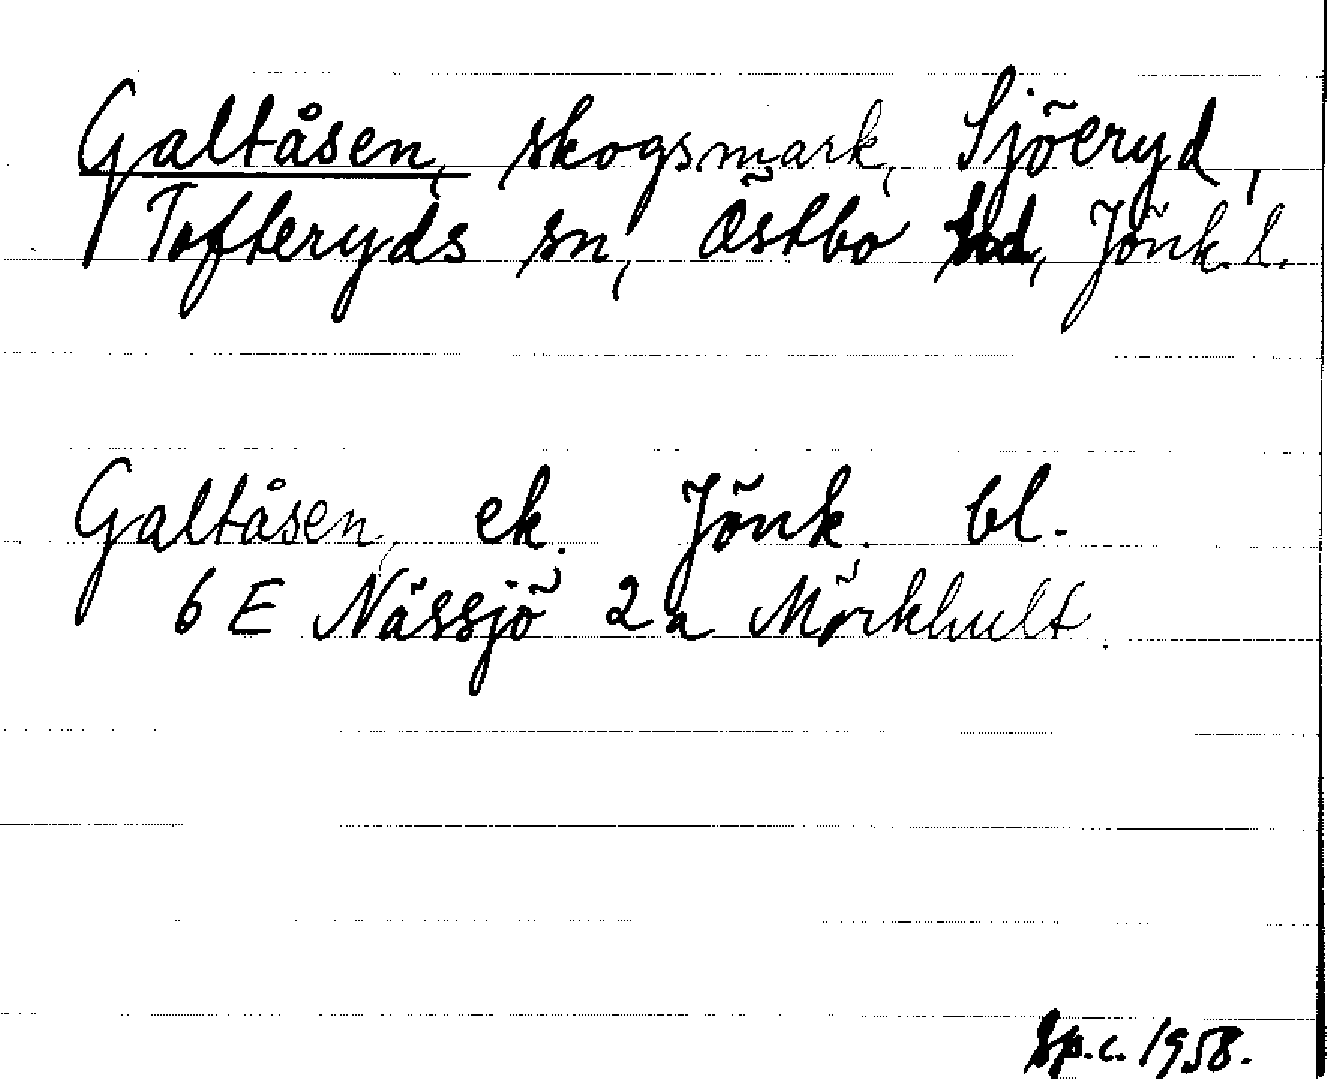 Galtåsen, skogsmark, Sjöeryd,
Tofteryds sn, Östbo hd, Jönk. l.
Galtåsen, ek. Jönk. bl.
6 E Nässjö 2a Mörkhult.
Sp.c. 1958.